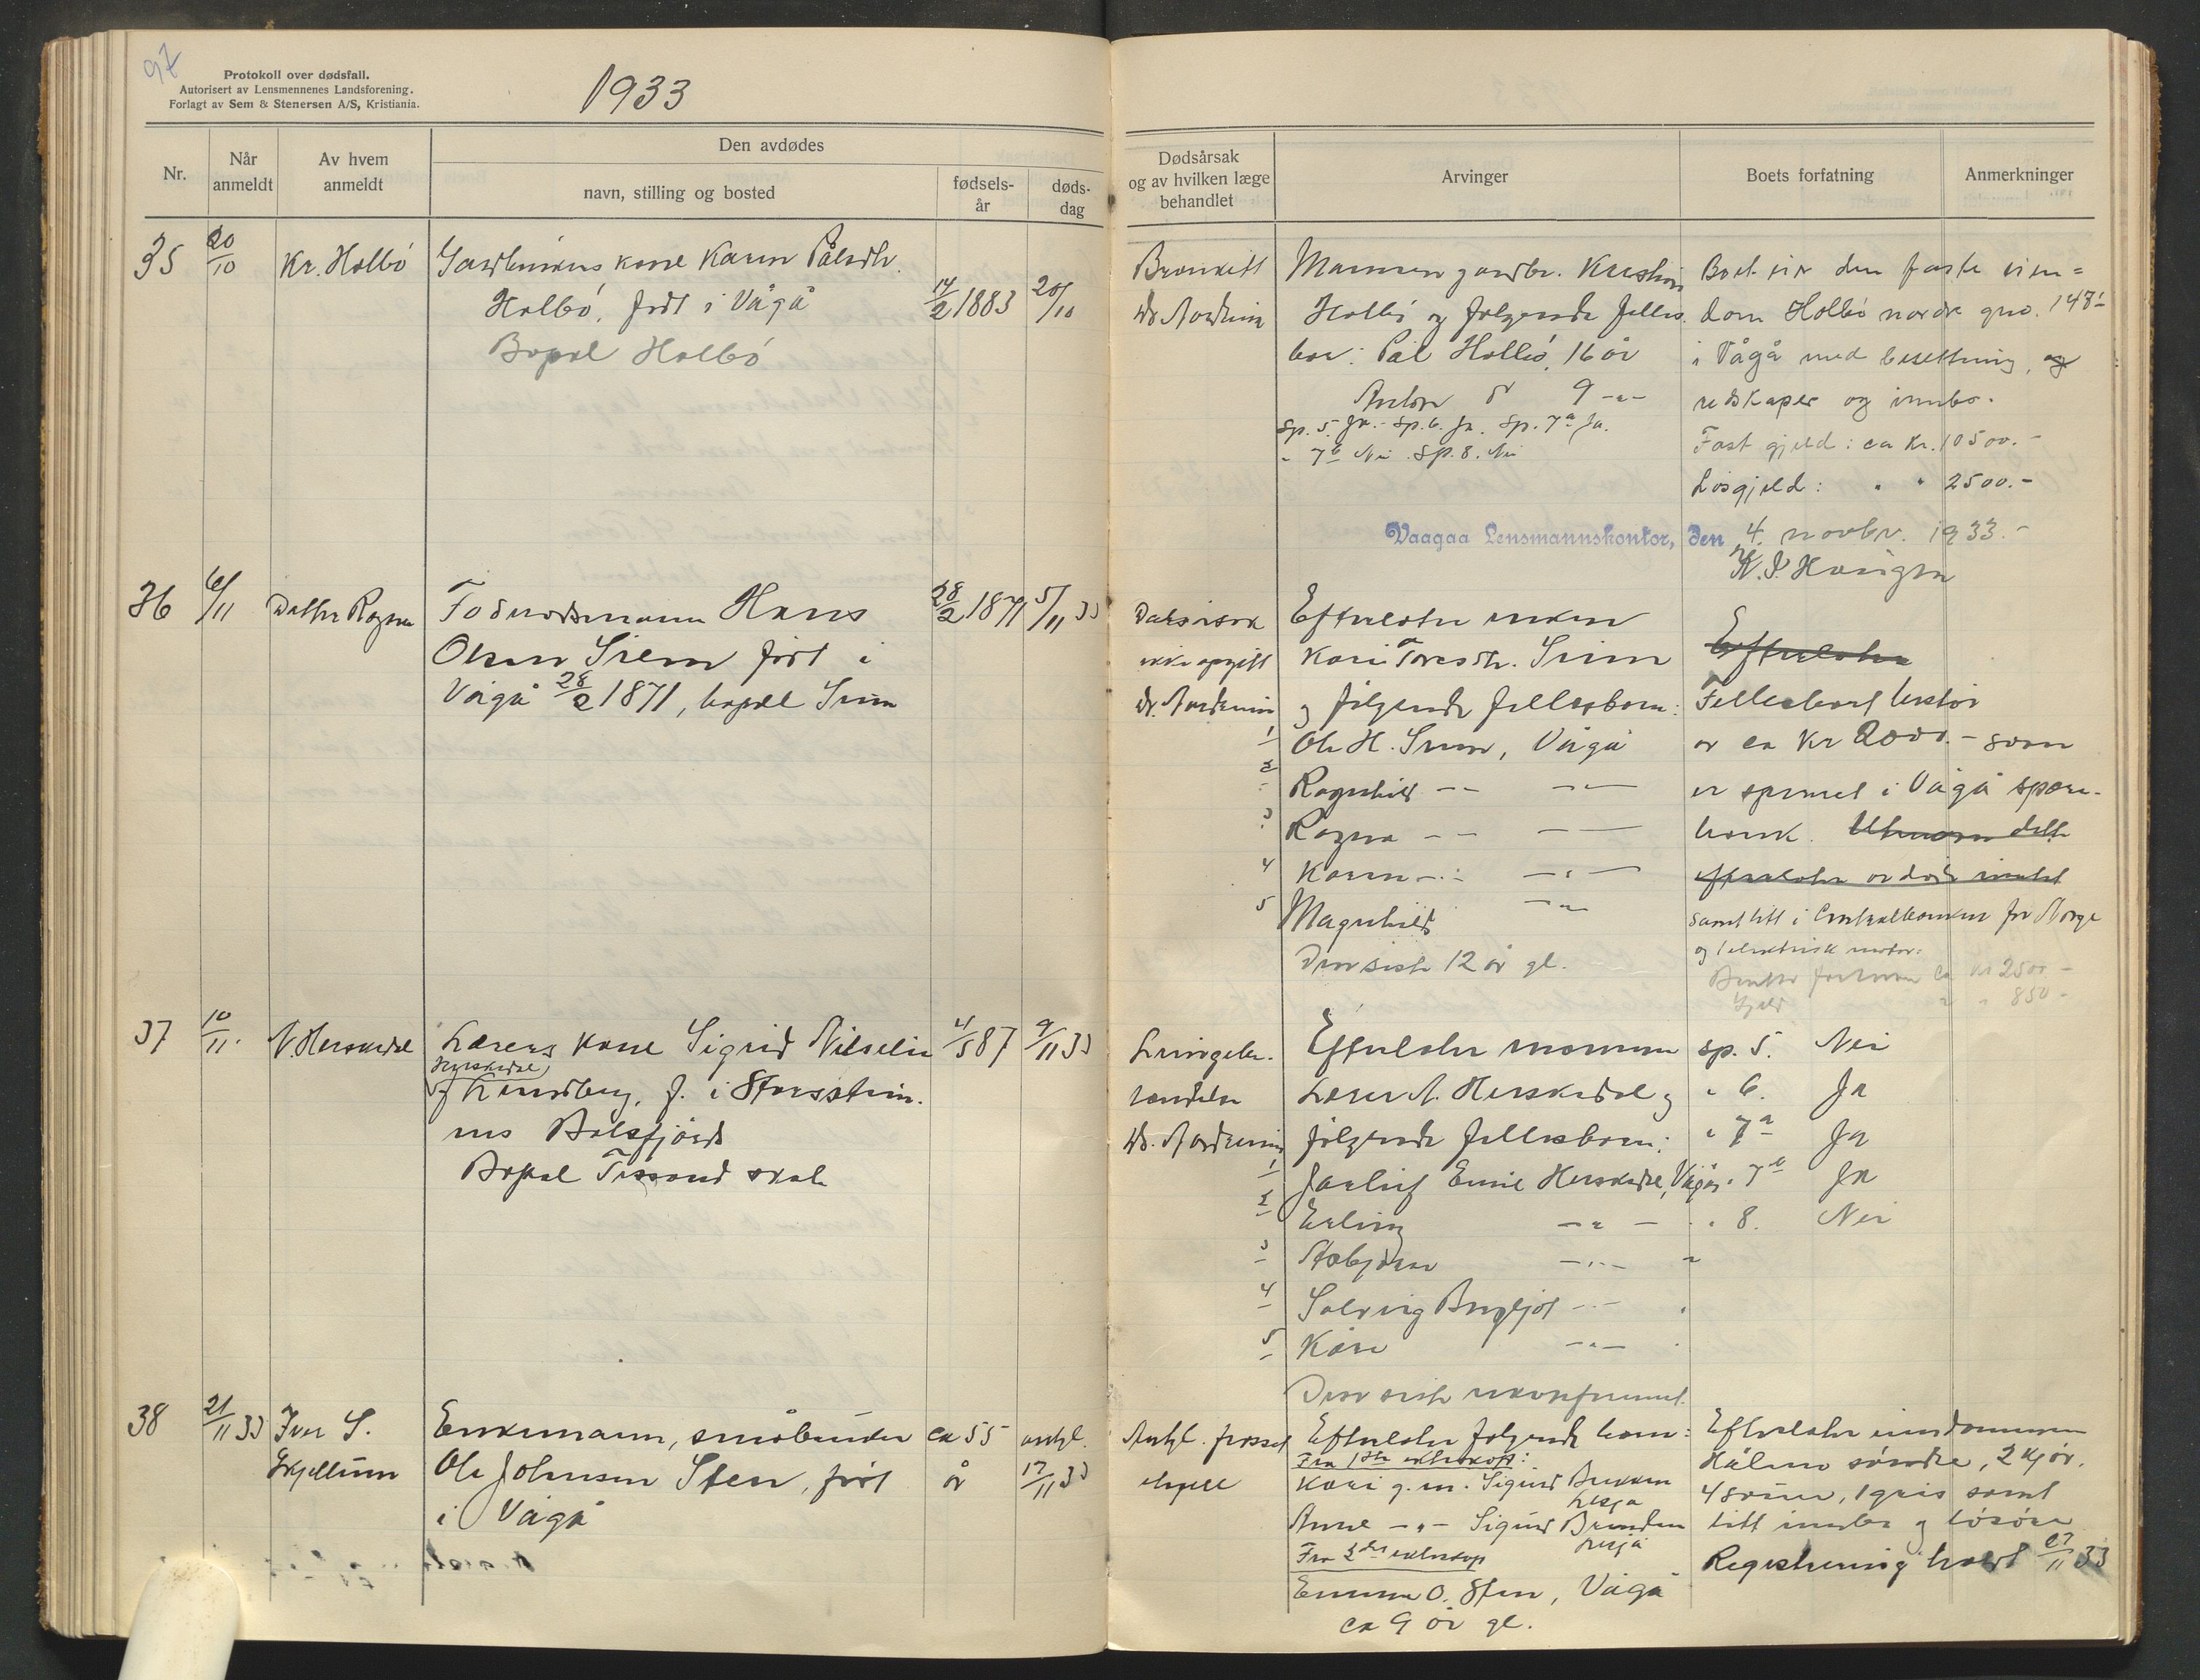 97
Protokoll over dødsfall.
Autorisert av Lensmennenes Landsforening.
Forlagt av Sem & Stenersen A/S, Kristiania.
1933
Nr.
Når anmeldt
Av hvem anmeldt
Den avdødes
navn, stilling og bosted
fødsels-år
døds-dag
Dødsårsak og av hvilken læge behandlet
Arvinger
Boets forfatning
Anmerkninger
35
20/10
Kr. Holbö
Gardbrukers kone Karen Pålsdtr.
Holbö, født i Vågå
Bopæl Holbö
14/2 1883
20/10
Bronkitt
Dr. Nordheim
Mannen gardbr. Kristian
Holbö og følgende felles
barn: Pål Holbö, 16 år
9 -"-
Sp. 5. Ja. - Sp. 6. Ja. Sp. 7a Ja.
" 7b Nei. Sp. 8. Nei
Boet eier den faste eien=
dom Holbö nordre gno. 148/1
i Vågå med besetning, og
redskaper og innbo.
Fast gjeld: ca kr. 10500.-
Løsgjeld: " " 2500.-
Vaagaa Lensmannskontor, den 4. novbr. 1933.-
36
6/11
Datter Ragna
Fodermann Hans
Olsen Sreen født i
Vågå 28/2 1871, bopæl
28/2 1871
5/11 33
Dødsårsak
ikke opgitt
Dr. Nordheim
Efterlater enken
Kari Toresdtr.
og følgende fellesbarn:
1 Ole H. Vågå
2 Ragnhild -- -"-
3 Ragna -- --
4 Karen -"- -"-
5 Magnhild -"-
Den siste 12 år gl.
Efterlater
Fellesboet består
av ca Kr 2000.- som
er i Vågå spare-
bank. Utenom dette
efterlater avdøde intet
samt litt i Centralbanken for Norge
og 1 elektrisk motor.
Brutto formue ca kr 2500.-
Gjeld " " 850.-
37
10/11.
N. Herskedal
Lærers kone Sigrid Nilseline
Herskedal
f Lundberg, f. i Storstein-
nes Balsfjord
Bopæl Tessand skole
4/5 87
9/11 33
Lungebe-
tændelse
Dr. Nordheim
Efterlater mannen
Lærer N. Herskedal og
følgende fellesbarn:
1 Jarleif Emil Herskedal, Vågå
2 Erling -"-
3 Asbjörn -"-
4 Solveig Bergljot -"-
5 Kåre -"-
Den siste ukonfirmert.
sp. 5. Nei
" 6. Ja
" 7a Ja
" 7b Ja
" 8. Nei
38
21/11 33
Iver S.
Skjellum
Enkemann, småbruker
Ole Johnsen Steen, født
i Vågå
ca 55
år
antgl.
17/11 33
Antgl. frosset
ihjell
Efterlater følgende barn:
Fra 1ste ekteskap:
Kari g. m. Sigurd Brekken
Lesja
Anne -"- Sigurd Brenden
Lesja
Fra 2det ekteskap
Emma O. Sten, Vågå
ca 9 år gl.
Efterlater eiendommen
søndre, 2 kjør,
4 sauer, 1 gris samt
litt innbo og løsøre
Registrering holdt 27/11 33